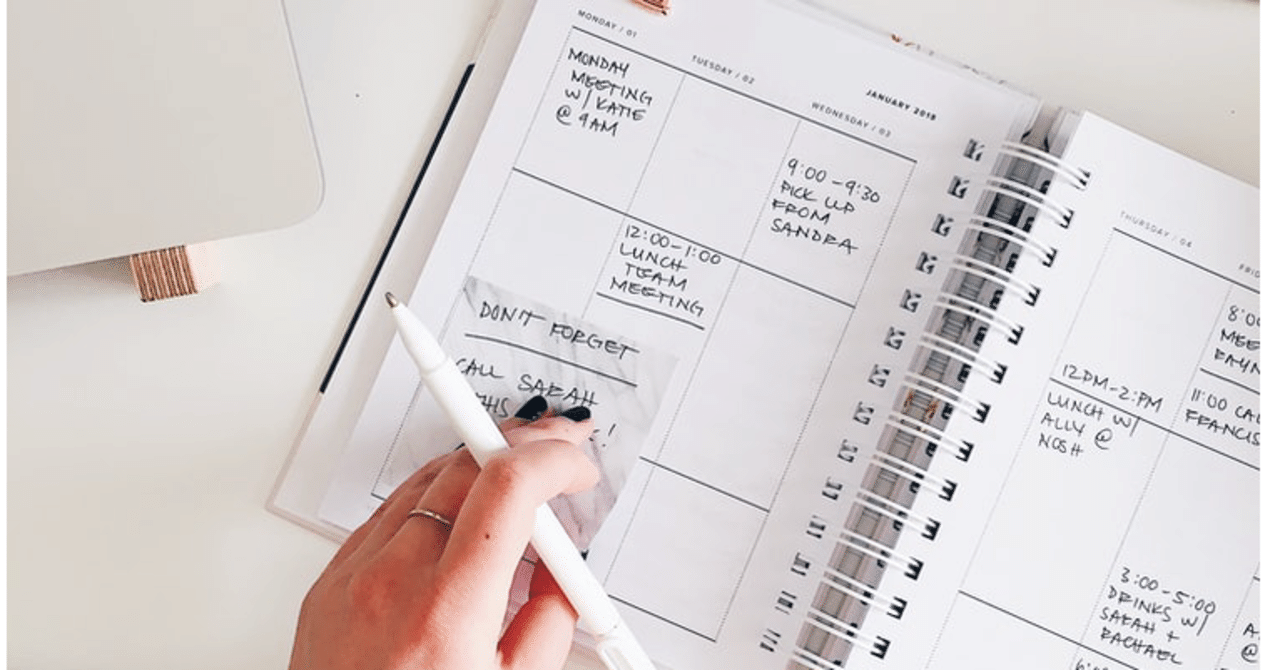 MONDAY / 01
MONDAY
MEETING
W/ KATIE
@ 9AM
TUESDAY / 02
12:00-1:00
LUNCH
TEAM
MEETING
JANUARY 2018
WEDNESDAY / 03
9:00-9:30
PICK UP
FROM
SANDRA
DON'T FORGET
CALL SARAH
THIS
THURSDAY / 04
12PM-2:PM
LUNCH W/
ALLY @
NOSH
11:00
3:00-5:00
DRINKS W/
SARAH +
RACHAEL